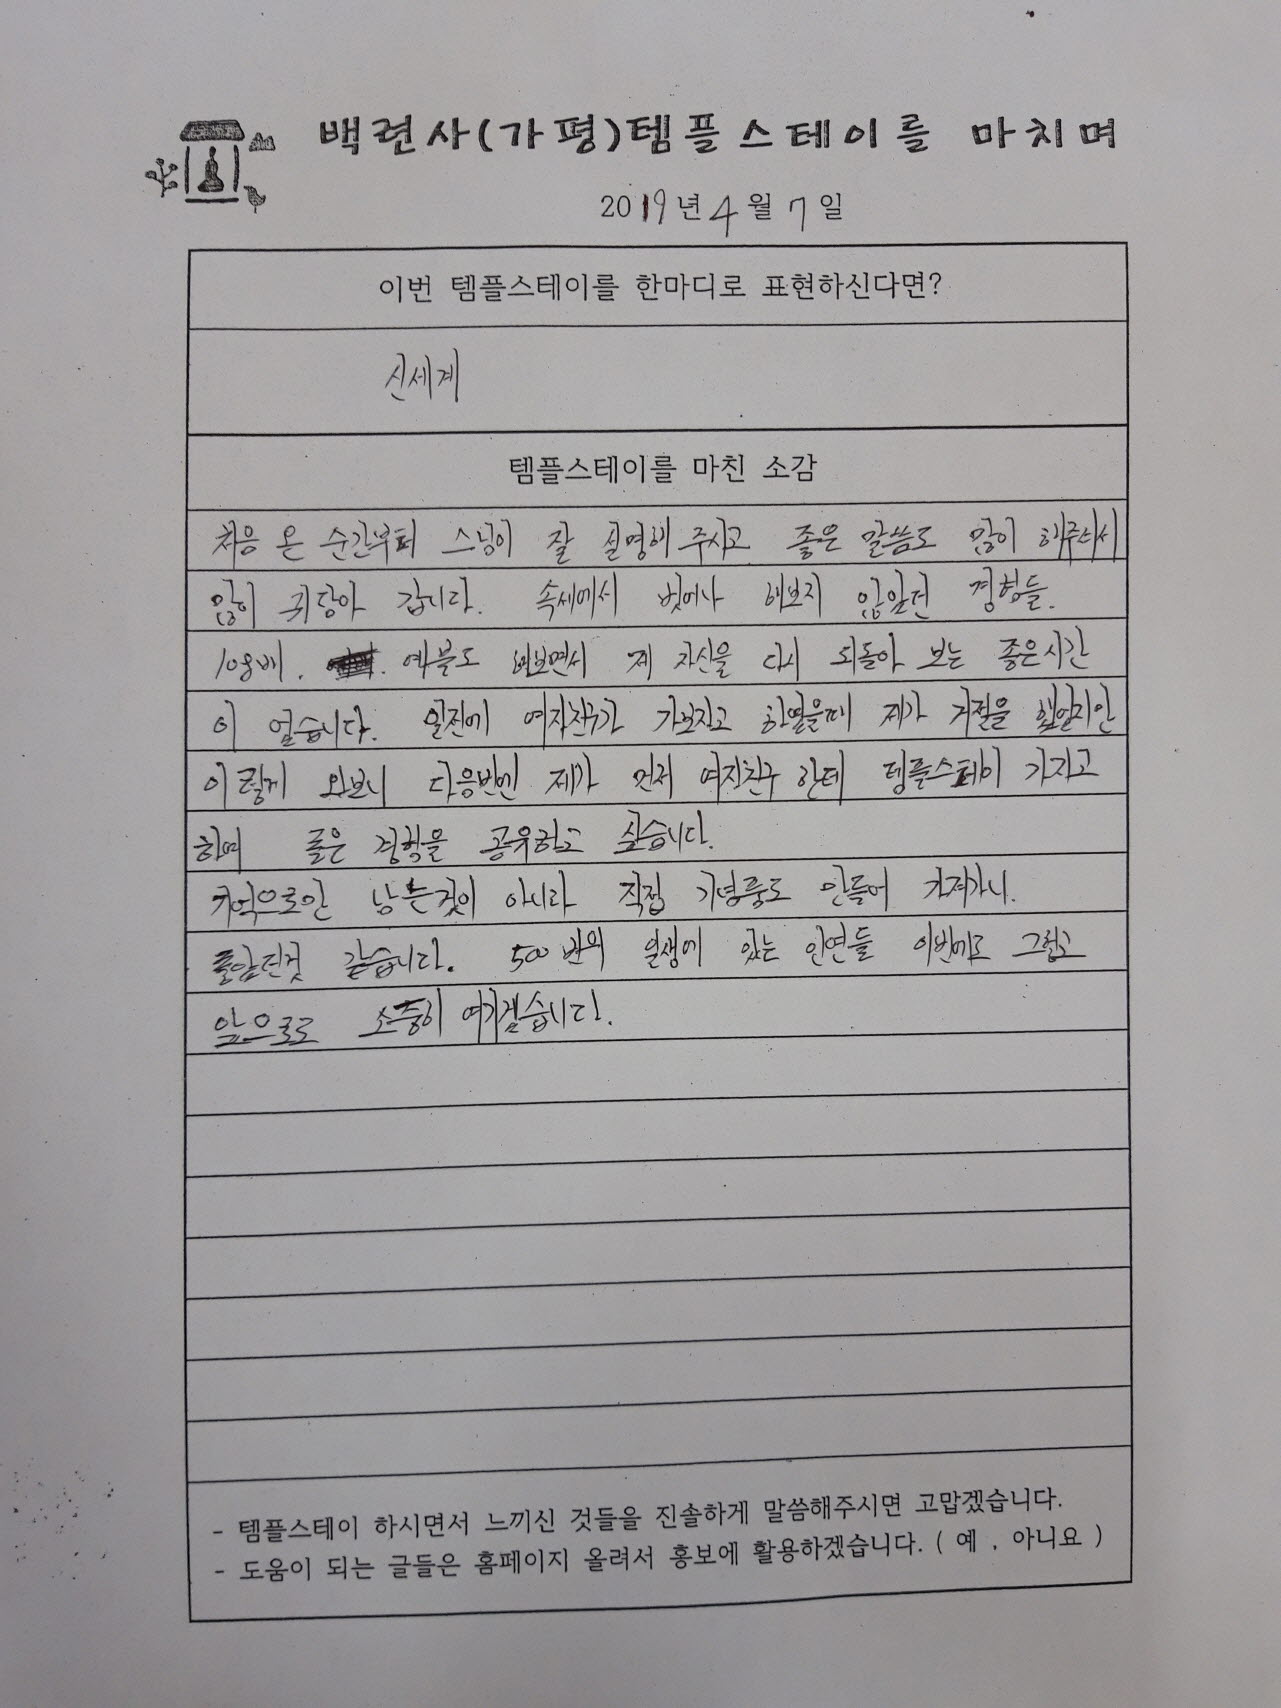 백련사(가평)템플스테이를 마치며
2019년 4월 7일
이번 템플스테이를 한마디로 표현하신다면?
신세계
템플스테이를 마친 소감
처음 온 순간부터 스님이 잘 설명해 주시고 좋은 말씀도 많이 해주셔서
많이 귀담아 갑니다. 속세에서 벗어나 해보지 않았던 경험들.
108배. 예불도 해보면서 제 자신을 다시 되돌아 보는 좋은시간
이 었습니다. 일전에 여자친구가 가보자고 하였을때 제가 거절을 했었지만
이렇게 와보니 다음번엔 제가 먼저 여자친구 한테 템플스테이 가자고
하며 좋은 경험을 공유하고 싶습니다.
기억으로만 남는것이 아니라 직접 기념품도 만들어 가져가니.
좋았던것 같습니다. 500번의 일생에 있는 인연들 이번에도 그렇고
앞으로도 소중히 여기겠습니다.
- 템플스테이 하시면서 느끼신 것들을 진솔하게 말씀해주시면 고맙겠습니다.
- 도움이 되는 글들은 홈페이지 올려서 홍보에 활용하겠습니다. ( 예 , 아니요 )